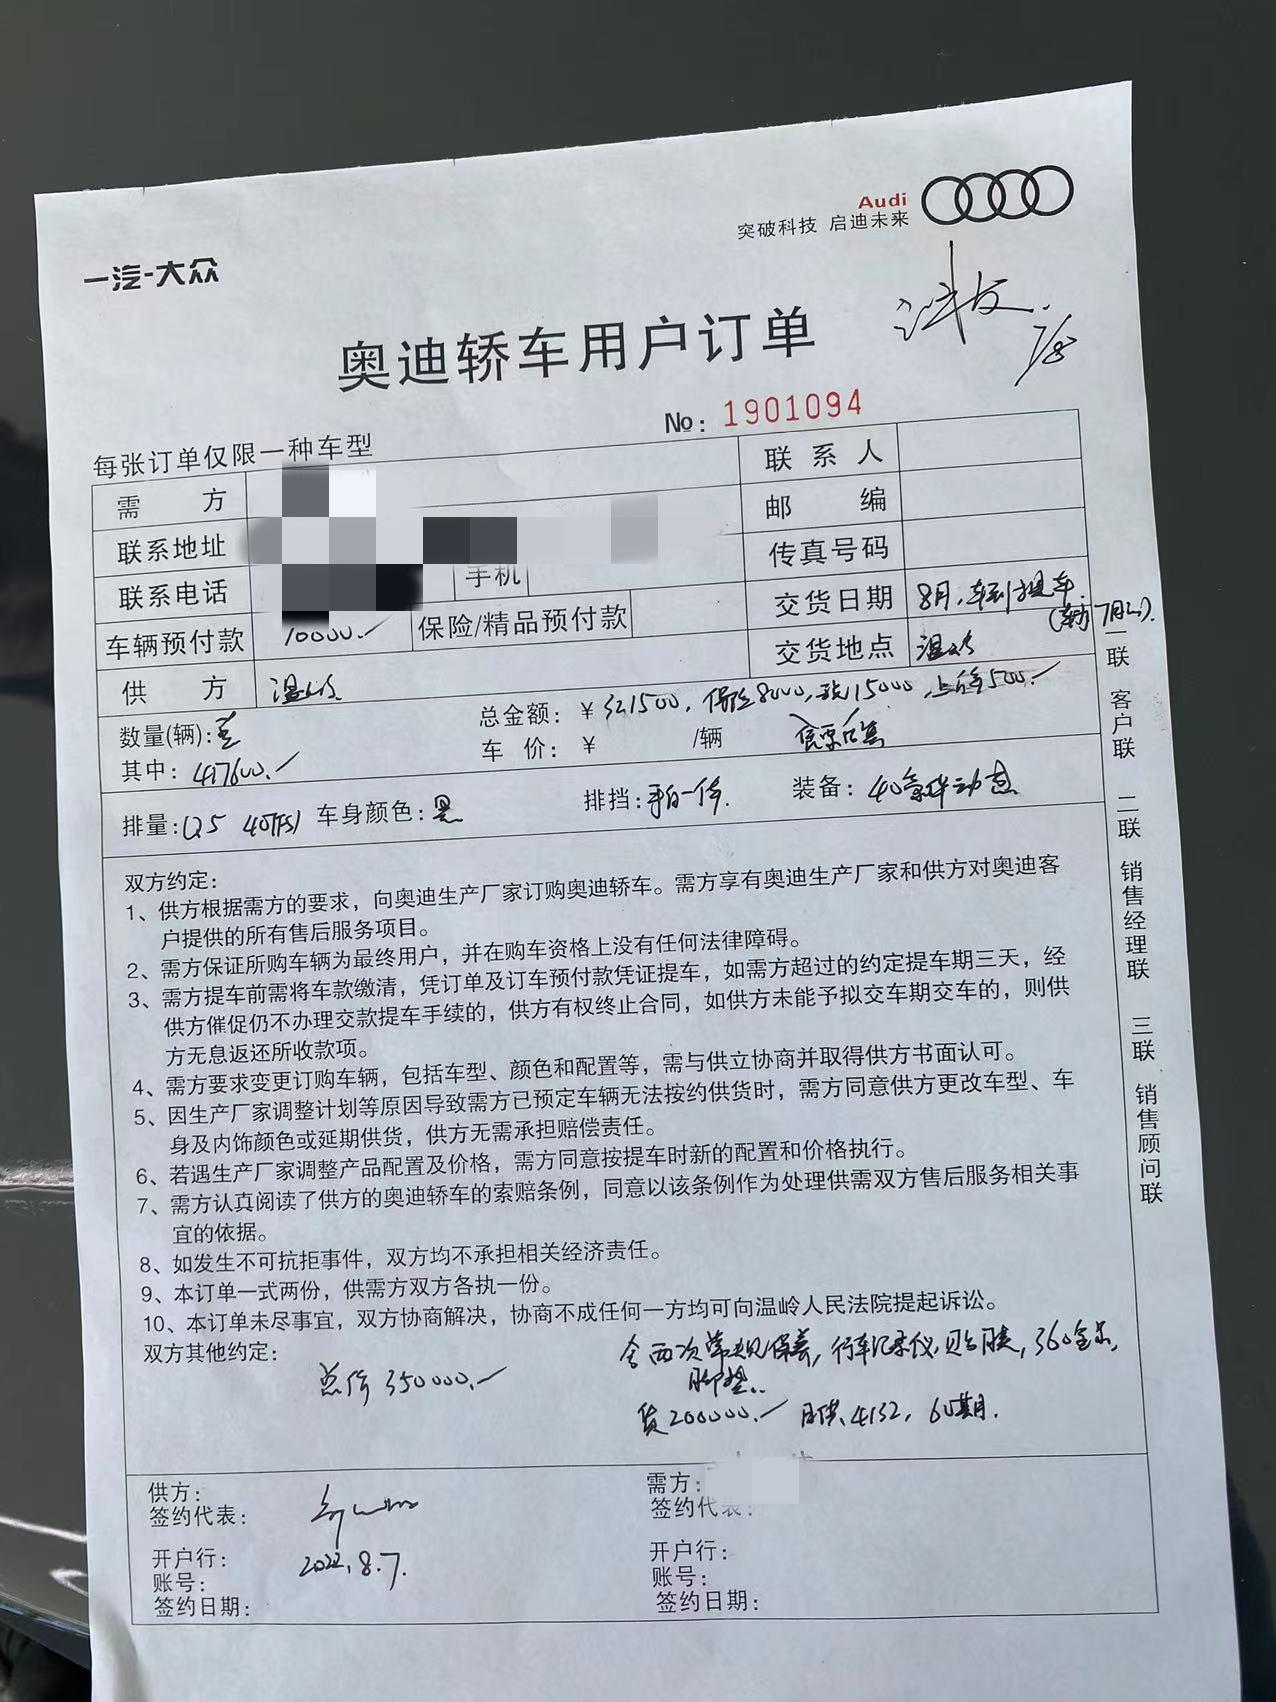 Audi
突破科技 启迪未来
一汽-大众
奥迪轿车用户订单
7/8
No: 1901094
每张订单仅限一种车型
需 方
联 系 人
联系地址
邮 编
联系电话
手机
传真号码
车辆预付款 10000.
保险/精品预付款
交货日期 8月,车到提车.
供 方 温岭
交货地点 温岭
数量(辆):
总金额:¥ 321500, 保险8000, 15000, 上牌500.
其中: 417600.
车 价:¥ /辆
排量:Q5 40TFSI 车身颜色:黑 排挡:手自一体. 装备:40豪华动感
双方约定:
1、供方根据需方的要求,向奥迪生产厂家订购奥迪轿车。需方享有奥迪生产厂家和供方对奥迪客
户提供的所有售后服务项目。
2、需方保证所购车辆为最终用户,并在购车资格上没有任何法律障碍。
3、需方提车前需将车款缴清,凭订单及订车预付款凭证提车,如需方超过的约定提车期三天,经
供方催促仍不办理交款提车手续的,供方有权终止合同,如供方未能予拟交车期交车的,则供
方无息返还所收款项。
4、需方要求变更订购车辆,包括车型、颜色和配置等,需与供立协商并取得供方书面认可。
5、因生产厂家调整计划等原因导致需方已预定车辆无法按约供货时,需方同意供方更改车型、车
身及内饰颜色或延期供货,供方无需承担赔偿责任。
6、若遇生产厂家调整产品配置及价格,需方同意按提车时新的配置和价格执行。
7、需方认真阅读了供方的奥迪轿车的索赔条例,同意以该条例作为处理供需双方售后服务相关事
宜的依据。
8、如发生不可抗拒事件,双方均不承担相关经济责任。
9、本订单一式两份,供需方双方各执一份。
10、本订单未尽事宜,双方协商解决,协商不成任何一方均可向温岭人民法院提起诉讼。
双方其他约定:
总价 350000.
含两次常规保养,行车记录仪,贴膜,360全景,
脚垫..
贷200000. 月供4132, 60期.
供方:
签约代表:
开户行:
账号:
签约日期:
2022.8.7.
需方:
签约代表:
开户行:
账号:
签约日期:
一联 客户联 二联 销售经理联 三联 销售顾问联